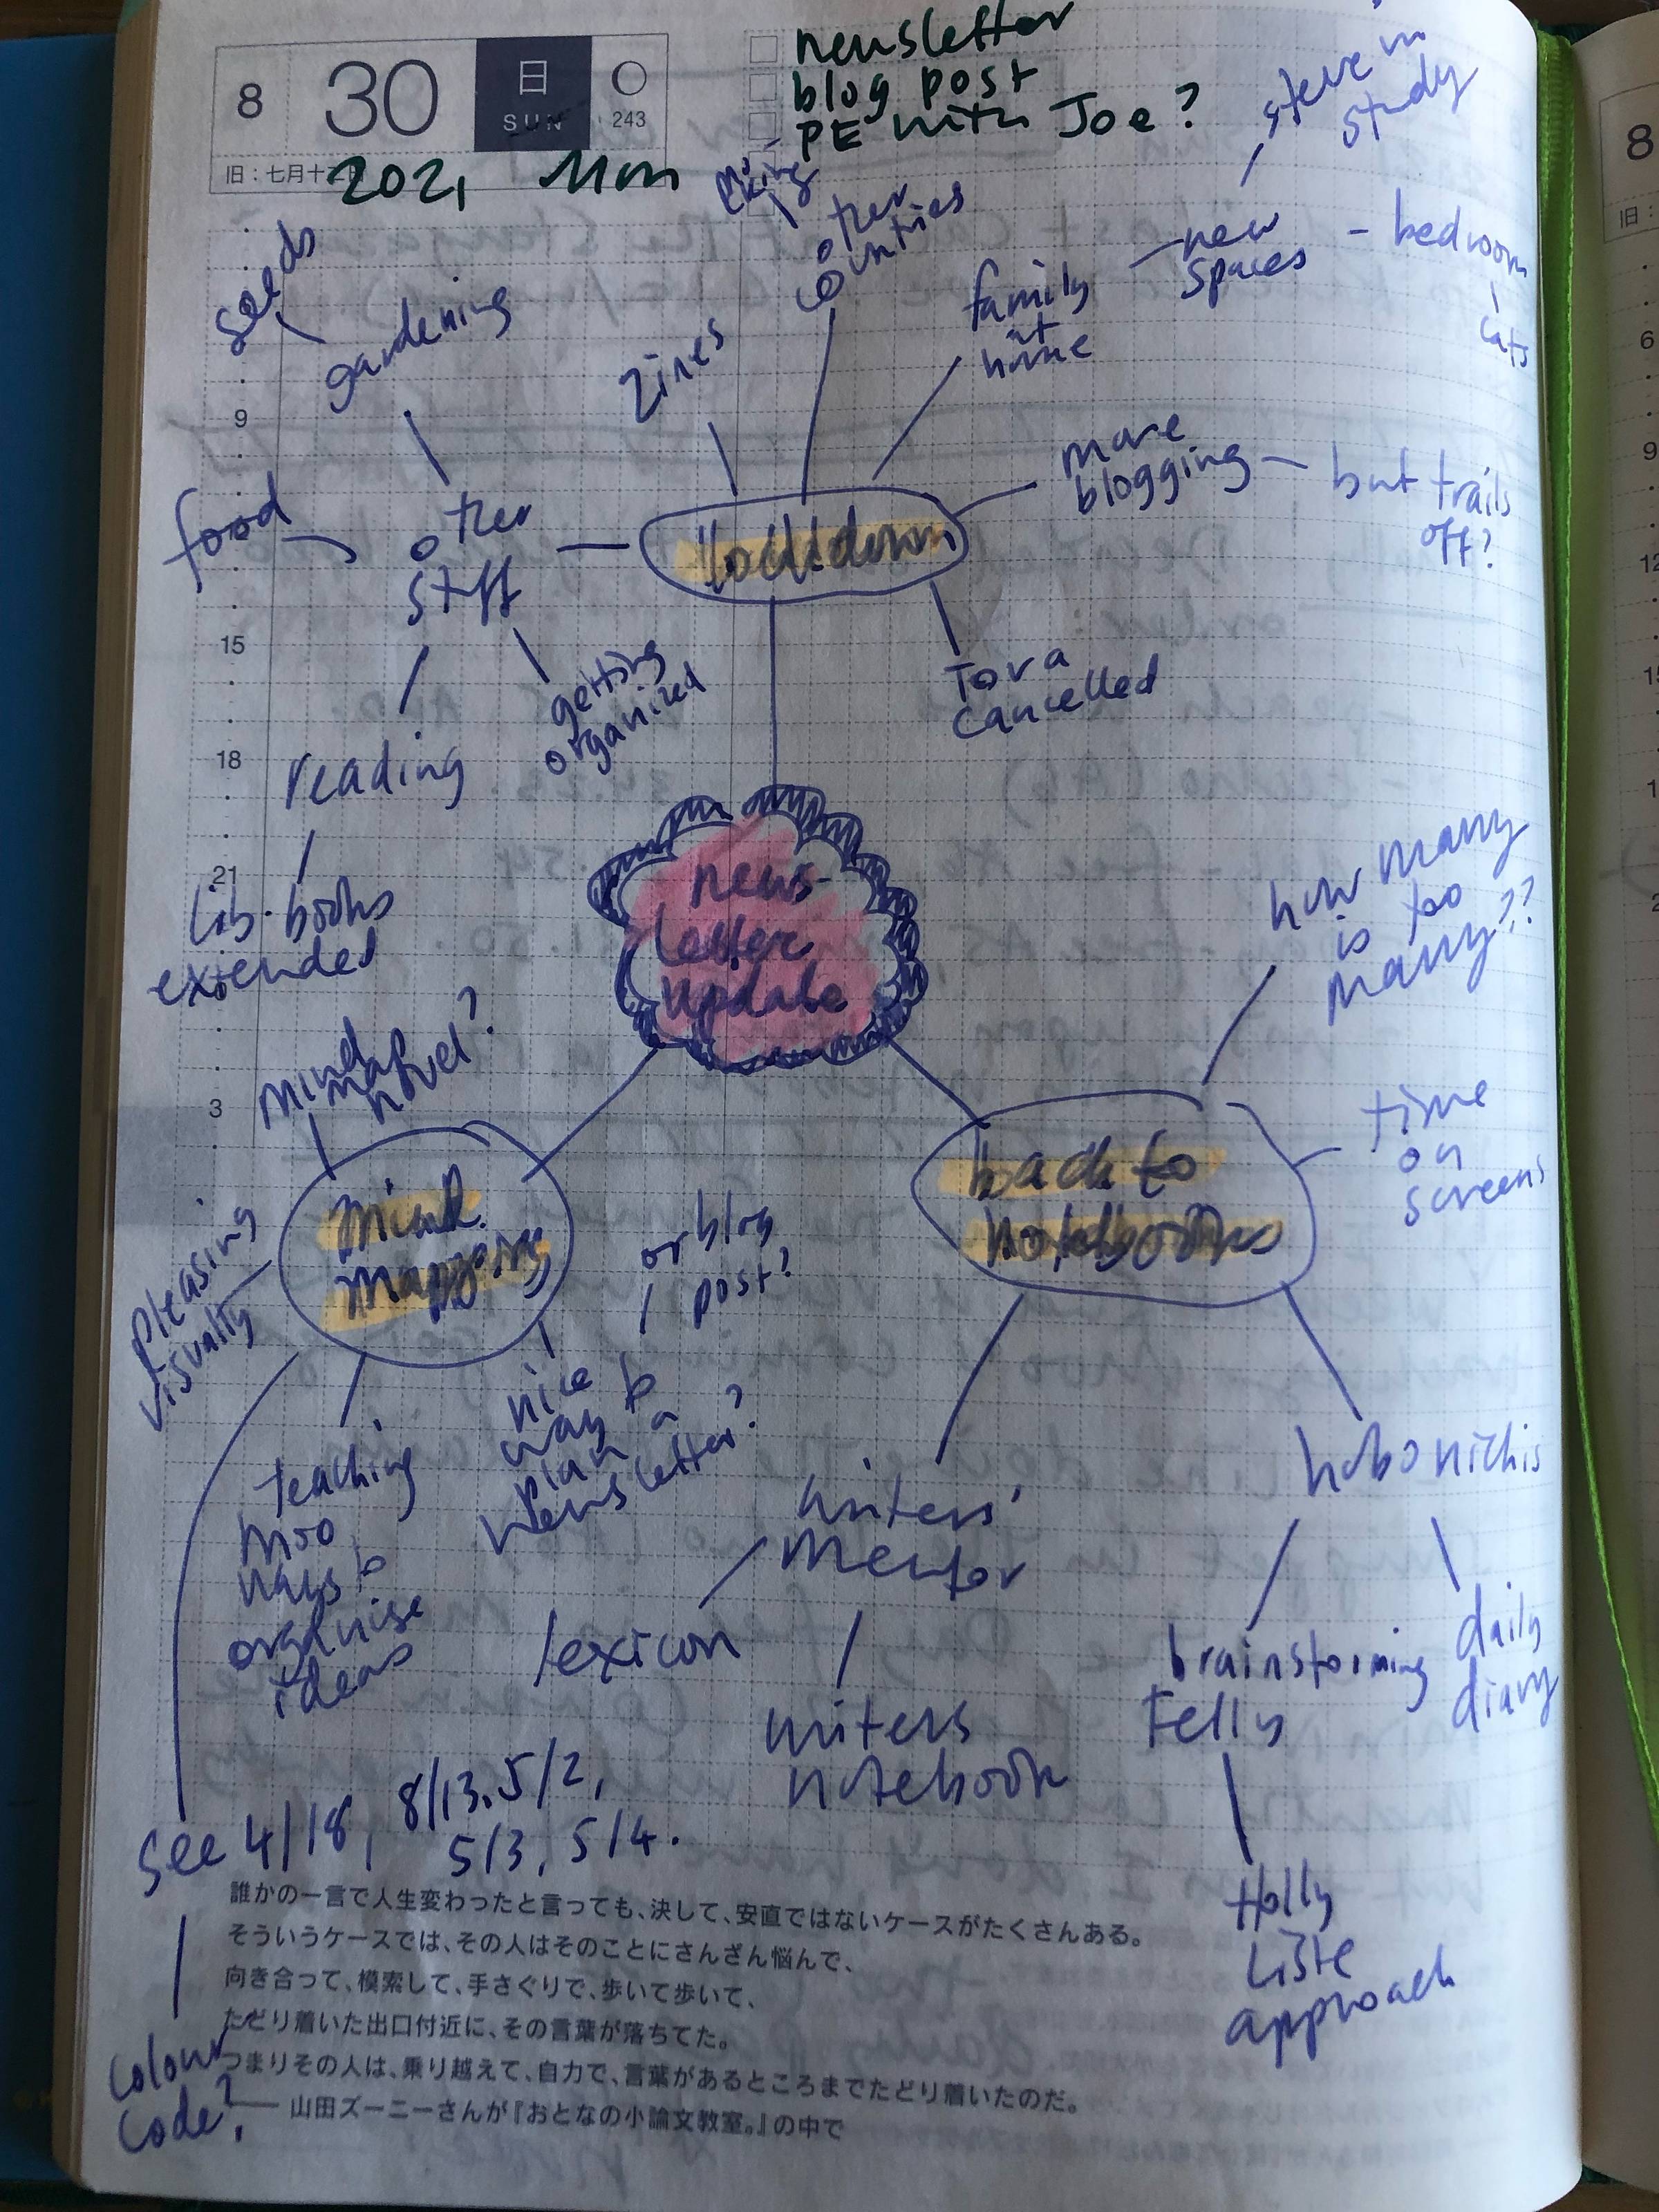 8
30
日
SUN
243
旧：七月十
2021 Mon
newsletter
blog post
PE with Joe?
steve in
study
other
countries
new
spaces
- bedroom
cats
family
at
home
seeds
gardening
zines
more
blogging
but trails
off?
food
other
stuff
lockdown
getting
organized
Tora
cancelled
reading
lib. books
extended
news-
letter
update
how many
is too
many??
mind
map
novel?
time
on
screens
mind
mapping
back to
notebooks
pleasing
visually
or blog
post?
nice
way to
plan a
newsletter?
teaching
moo
ways to
organise
ideas
writers'
mentor
hobonichis
lexicon
writers
notebook
brainstorming
Felly
daily
diary
Holly
Lisle
approach
see 4/18, 8/13. 5/2,
5/3, 5/4.
colour
code?
誰かの一言で人生変わったと言っても、決して、安直ではないケースがたくさんある。
そういうケースでは、その人はそのことにさんざん悩んで、
向き合って、模索して、手さぐりで、歩いて歩いて、
たどり着いた出口付近に、その言葉が落ちてた。
つまりその人は、乗り越えて、自力で、言葉があるところまでたどり着いたのだ。
—— 山田ズーニーさんが『おとなの小論文教室。』の中で
9
15
18
21
3
8
旧：
6
9
12